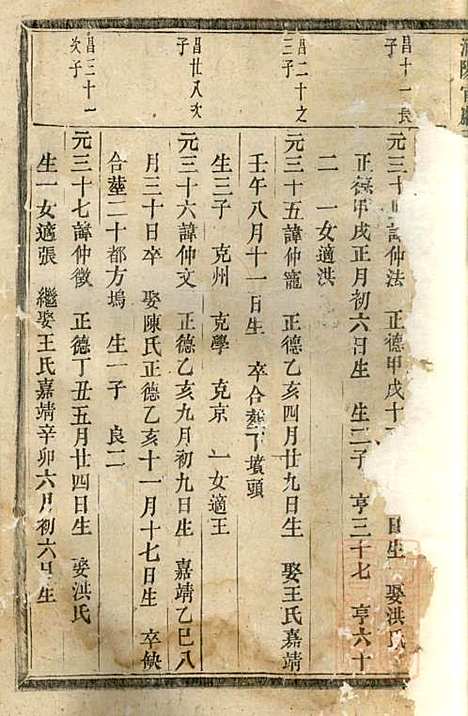 昌十一長
子
元三十四諱仲法 正德甲戌十 日生 娶洪氏
正德甲戌正月初六日生 生二子 亨三十七 亨六十
二 一女適洪
昌二十之
三子
元三十五諱仲寵 正德乙亥四月廿九日生 娶王氏嘉靖
壬午八月十一日生 卒合葬下墳頭
生三子 克州 克學 克京 一女適王
昌廿八次
子
元三十六諱仲文 正德乙亥九月初九日生 嘉靖乙巳八
月三十日卒 娶陳氏正德乙亥十一月十七日生 卒缺
合葬二十都方塢 生一子 良二
昌三十一
次子
元三十七諱仲徵 正德丁丑五月廿四日生 娶洪氏
生一女適張 繼娶王氏嘉靖辛卯六月初六日生